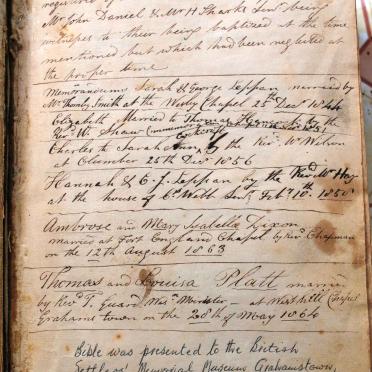 Mr John Daniel & Mr H Sparks Senr being
witnesses to their being baptized at the time
mentioned but which had been neglected at
the proper time
Memorandums Sarah & George Tappan married by
Mr Thornley Smith at the Wesley Chapel 25th Decr 1844
Elizabeth Married to Thomas Hancock by the
Revd W. Shaw
Charles to Sarah Ann by the Revd W Wilson
at Clumber 25th Decr 1856
Hannah & C. J. Tappan by the Revd W Hay
at the house of C. Webb Senr Feby 10th 1850
Ambrose and Mary Isabella Dixon
married at Fort England Chapel by Revd Chapman
on the 12th August 1863
Thomas and Louisa Platt married
by Revd T. Guard Wesn Minister - at West hill Chapel
Grahams town on the 28th of May 1864
Bible was presented to the British
Settlers' Memorial Museum Grahamstown,